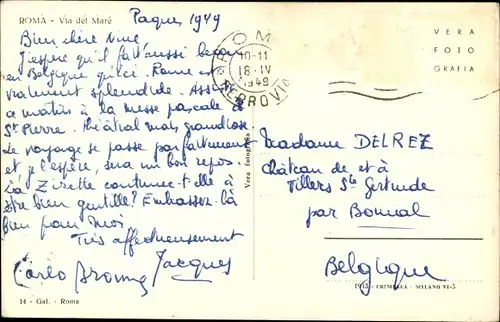 ROMA - Via del Maré
Paques 1949
Bien chère
J'espère qu'il fait aussi beau
en Belgique qu'ici. Rome est
vraiment splendide. Assisté
ce matin à la messe pascale à
St Pierre. Théatral mais grandiose
Le voyage se passe parfaitement
et je l'espère, sera un bon repos.
Et Zizette continue-t-elle à
être bien gentille? Embrassez-là
bien pour moi
Très affectueusement
Jacques
Carlo
14 - Gal. - Roma
Vera fotografia
ROMA
10-11
18·IV
1949
FERROVIA
VERA
FOTO
GRAFIA
Madame DELREZ
Château de et à
Villers Ste Gertrude
par Bomal
Belgique
1935 - CRIMELLA - MILANO VI-5